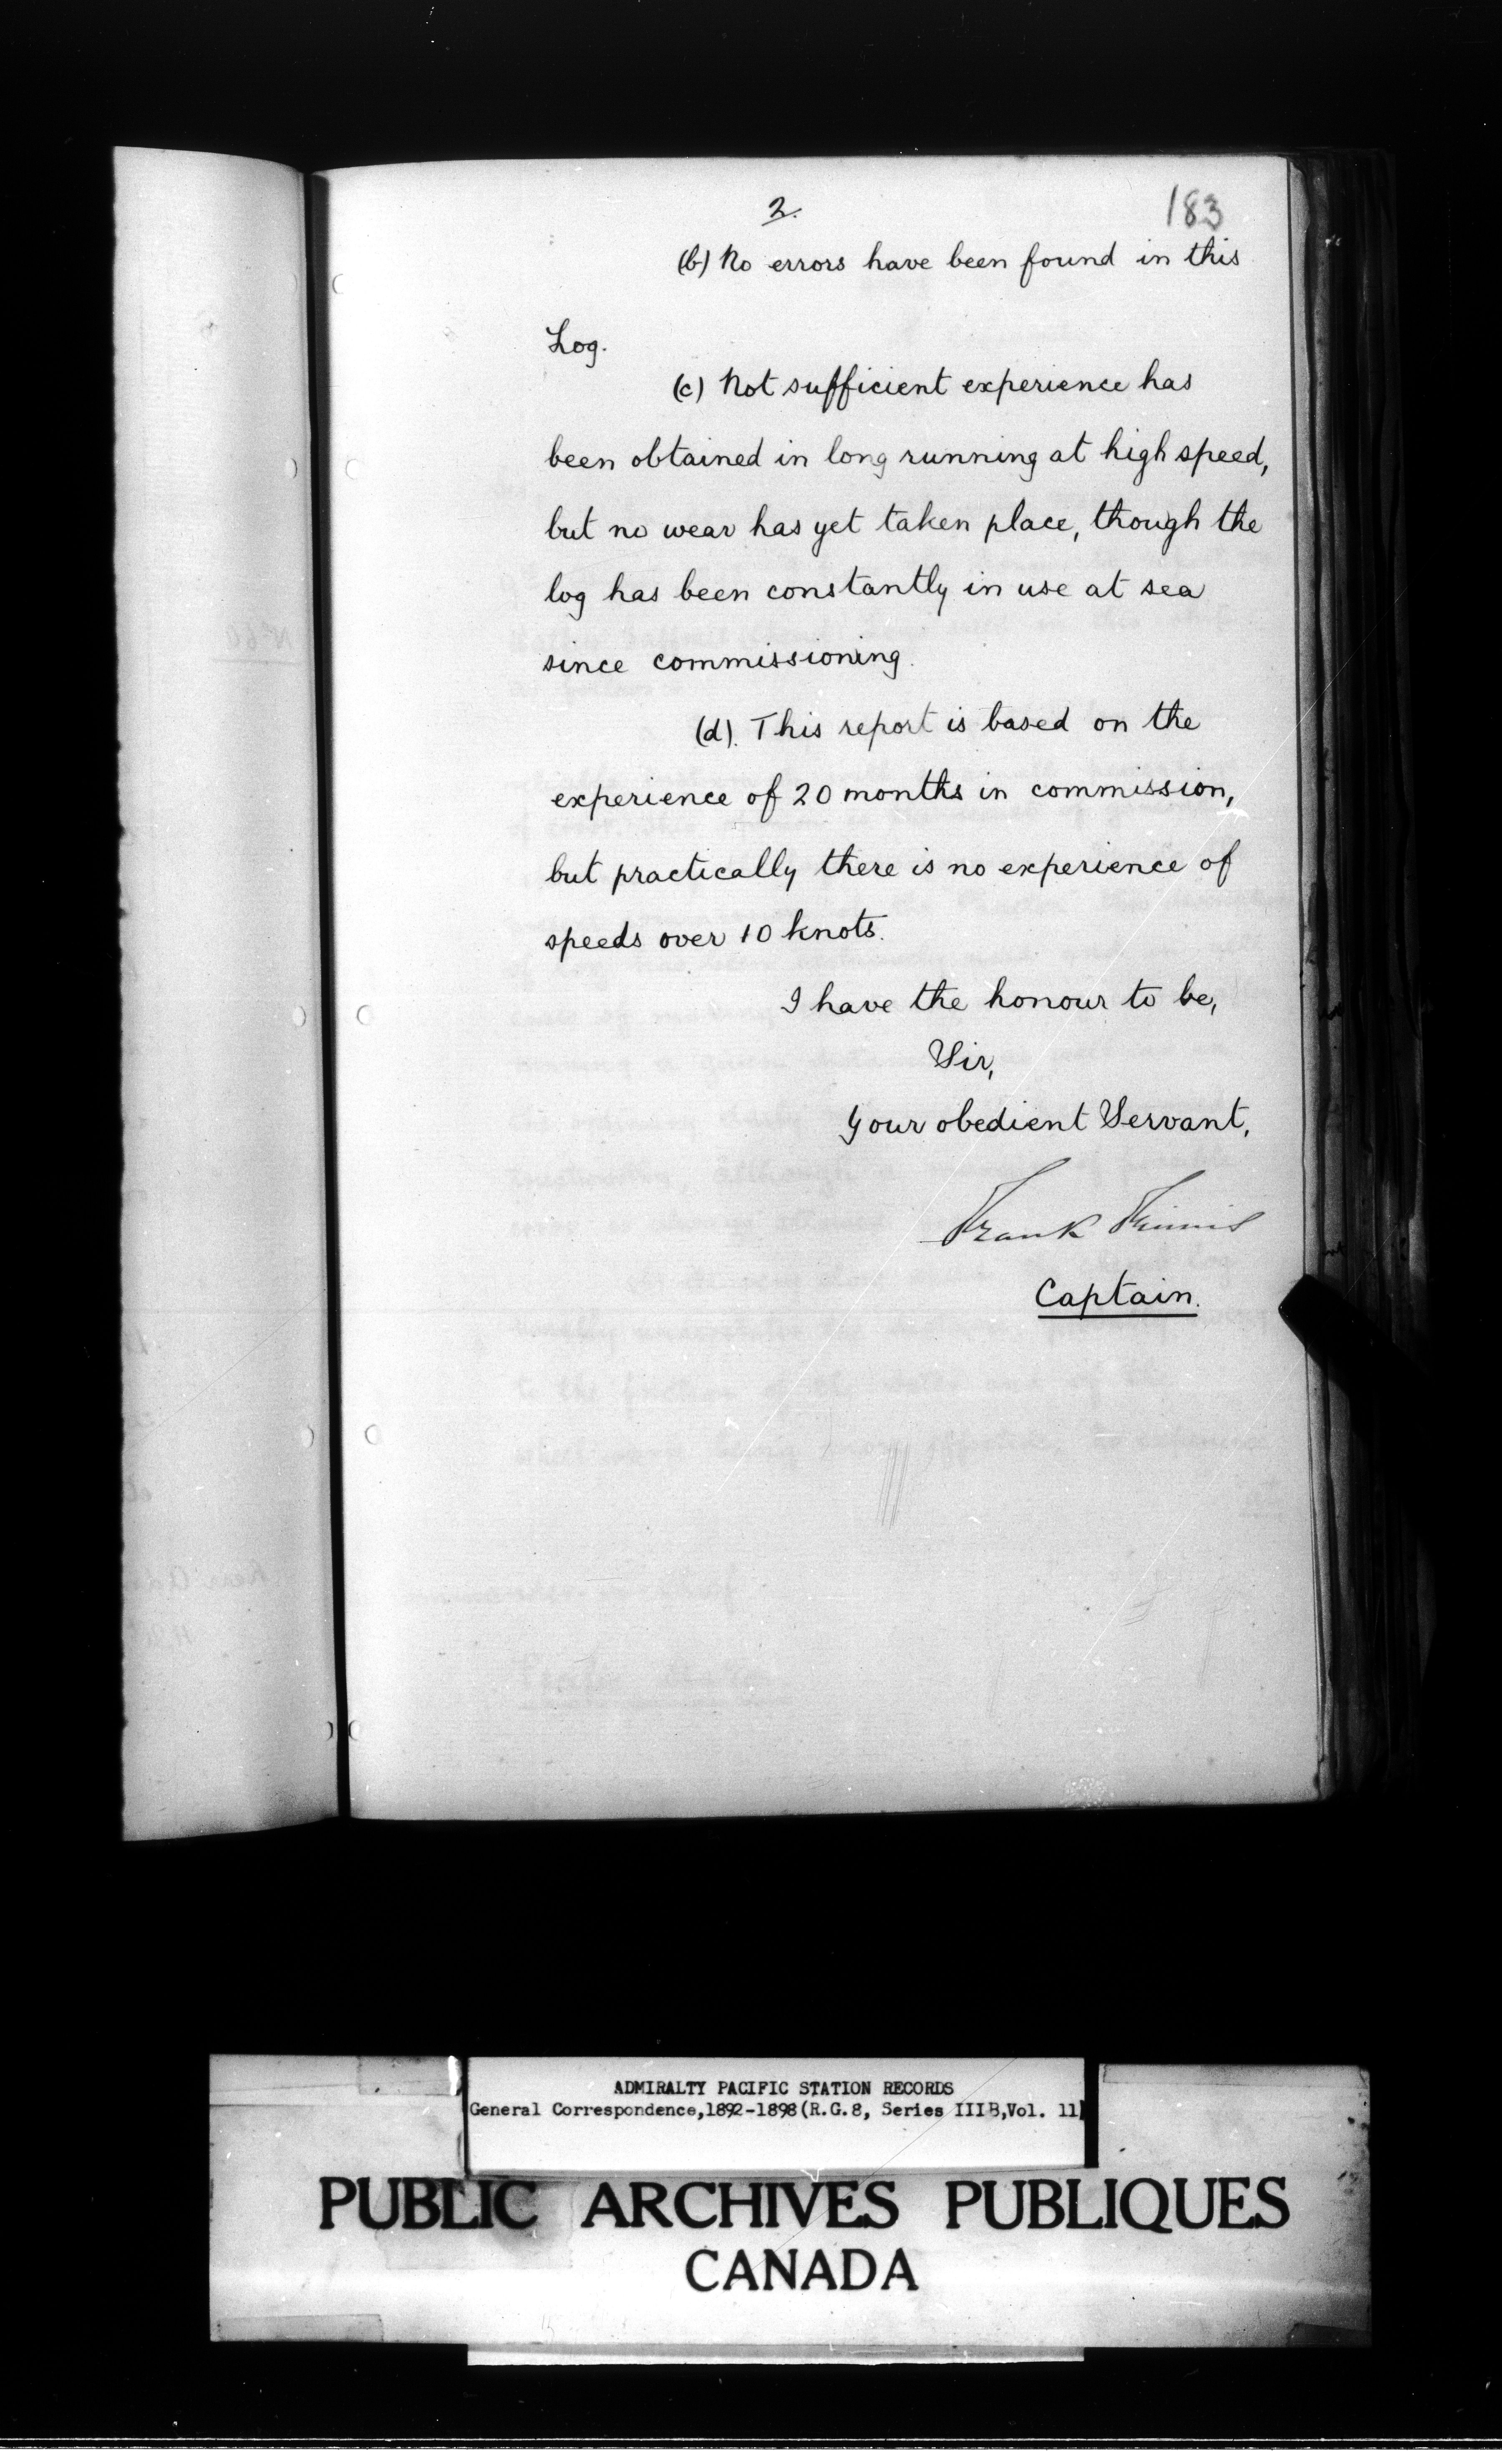 2.
183
(b) No errors have been found in this
Log.
(c) Not sufficient experience has
been obtained in long running at high speed,
but no wear has yet taken place, though the
log has been constantly in use at sea
since commissioning.
(d). This report is based on the
experience of 20 months in commission,
but practically there is no experience of
speeds over 10 knots.
I have the honour to be,
Sir,
Your obedient Servant,
Frank Finnis
Captain.
No 60
ADMIRALTY PACIFIC STATION RECORDS
General Correspondence,1892-1898(R.G.8, Series IIIB,Vol. 11)
PUBLIC ARCHIVES PUBLIQUES
CANADA